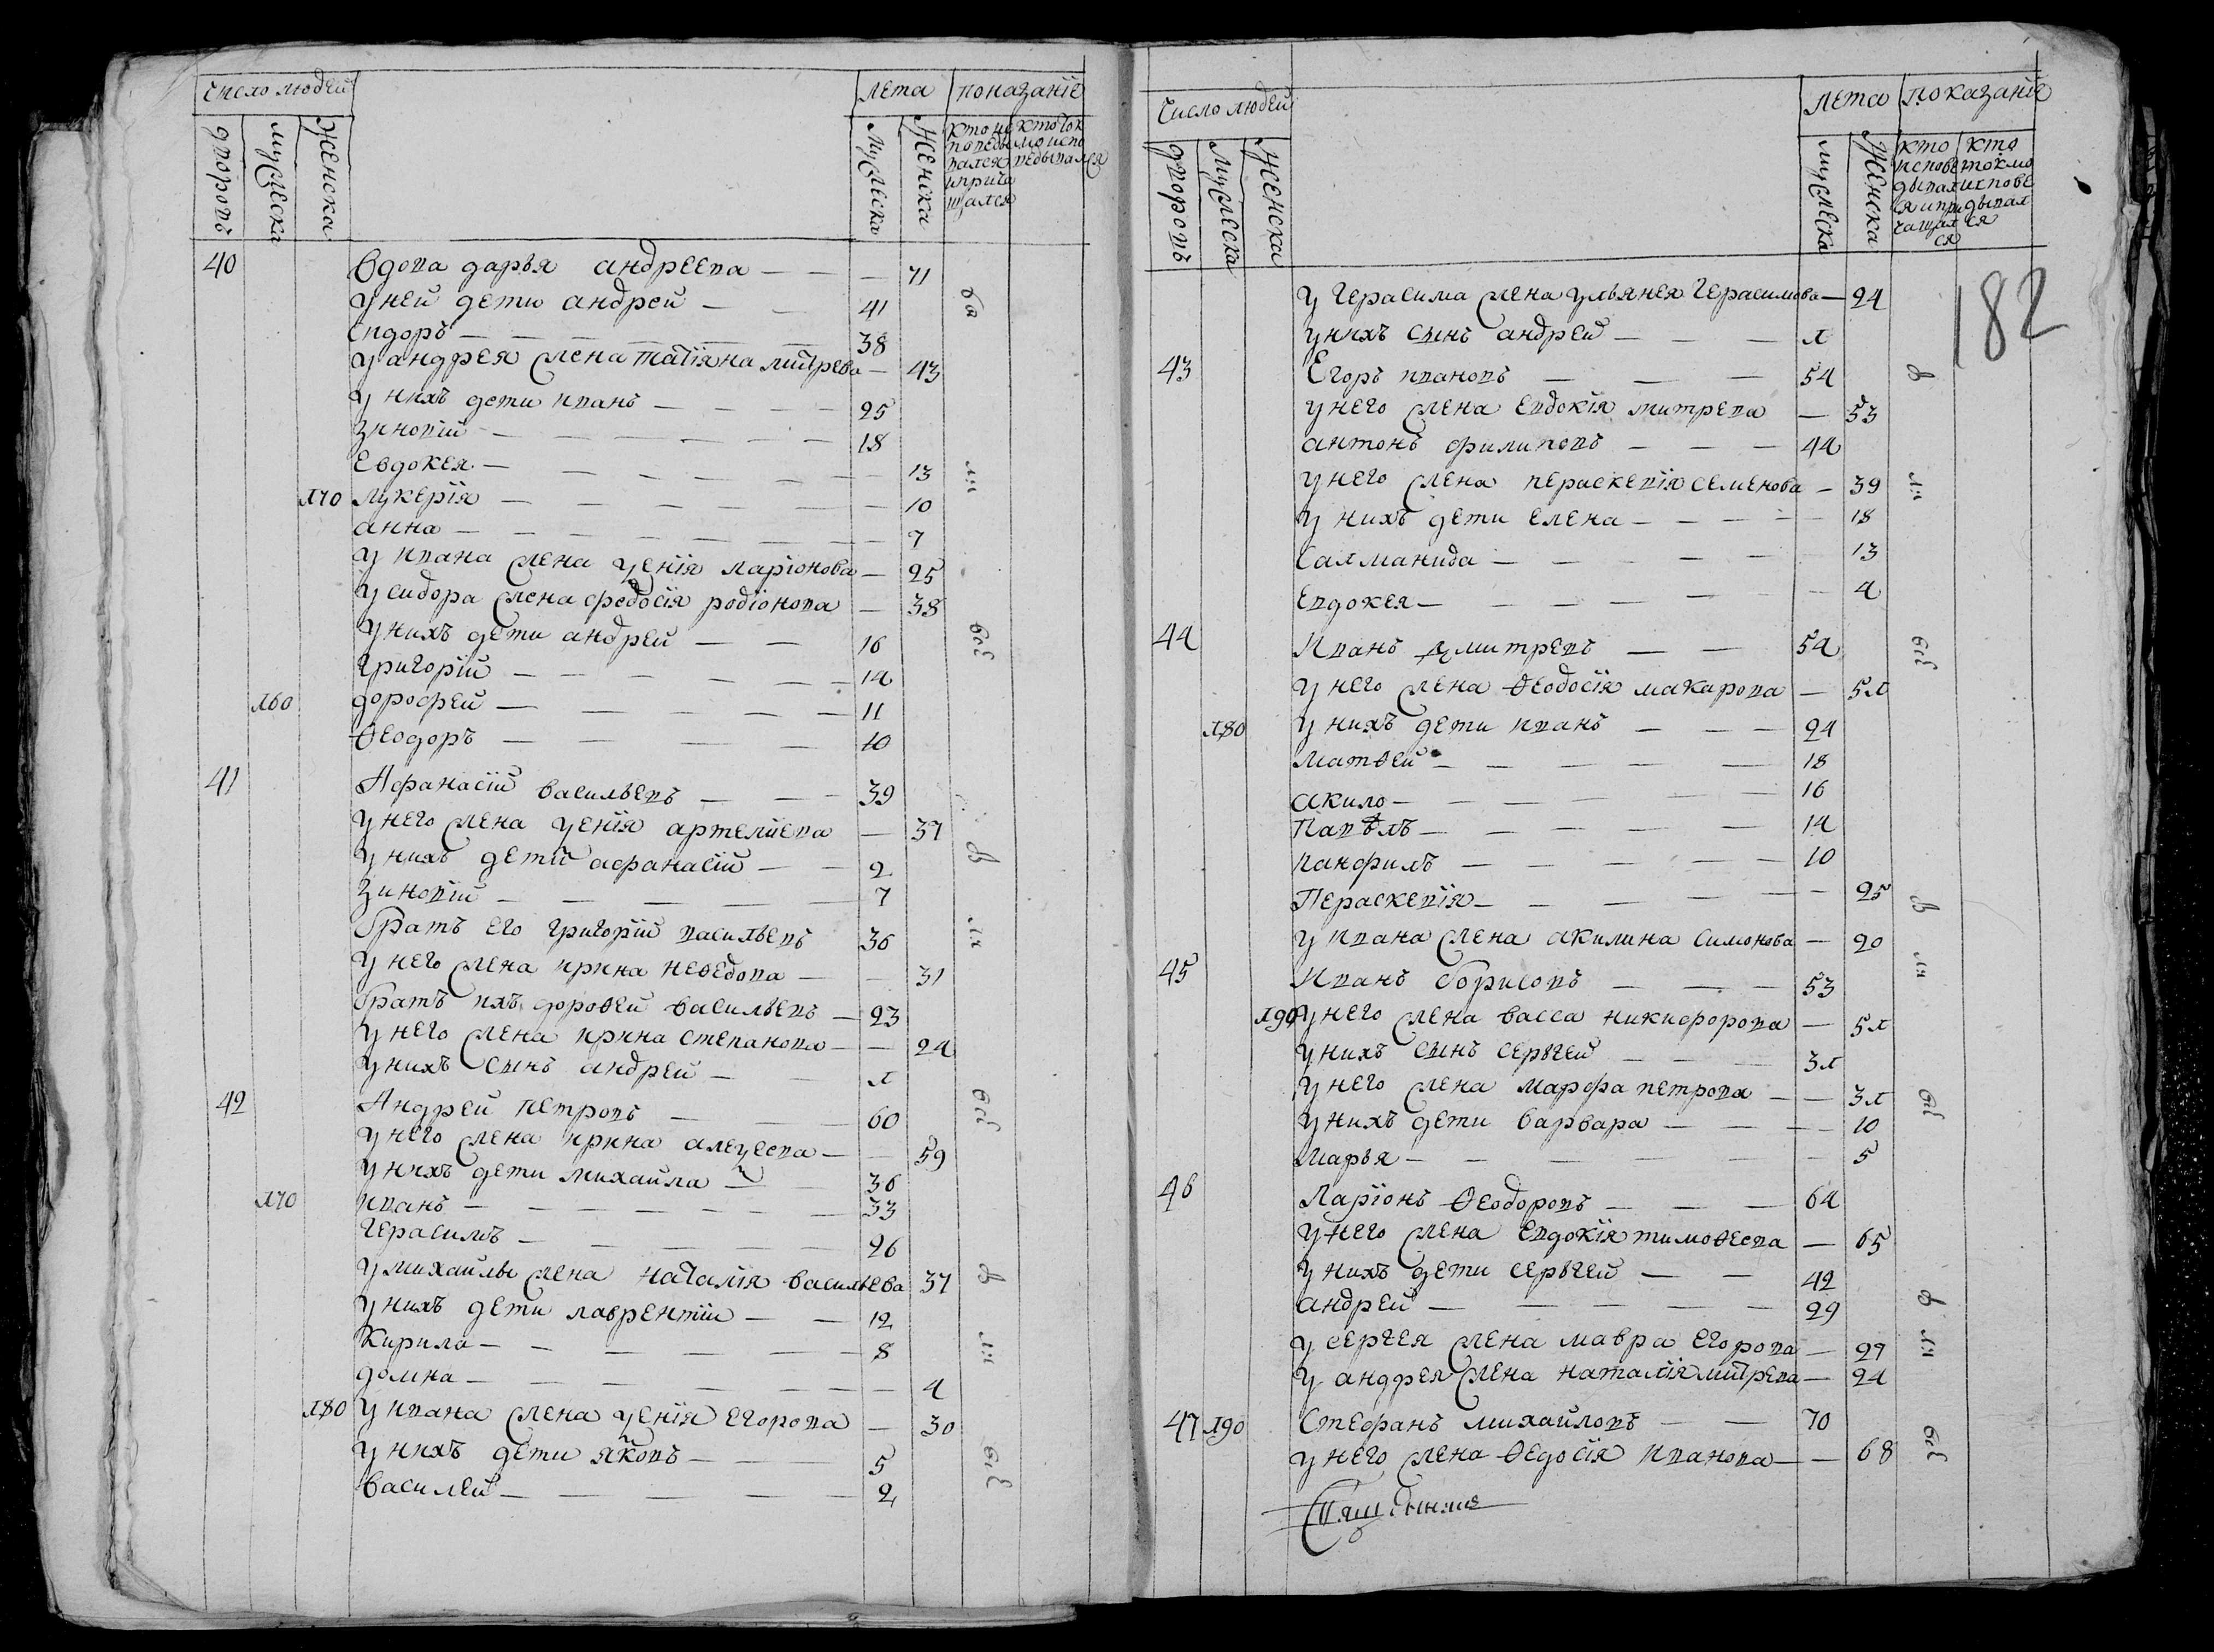 Число людей
лета
показание
дворовъ
мужеска
женска
мужеска
женска
40 Вдова дарья андреева — 71
у ней дети андрей — 41
Сидоръ — 38
у андрея жена татияна митрева — 43
у нихъ дети иванъ — 25
Зиновій — 18
Евдокея — 13
170 лукерія — 10
анна — 7
у ивана жена ѯенія ларіонова — 25
у сидора жена федосія родіонова — 38
у нихъ дети андрей — 16
григорій — 14
160 дорофей — 11
Ѳеодоръ — 10
41 Афанасій васильевъ — 39
у него жена ѯенія артемиева — 37
у нихъ дети афанасій — 2
Зиновій — 7
братъ его григорій васильевъ 36
у него жена ирина неѳедова — 31
братъ ихъ дороѳей васильевъ — 23
у него жена ирина степанова — 24
у нихъ сынъ андрей — 1
42 Андрей петровъ — 60
у него жена ирина алеѯеева — 59
у нихъ дети михайла — 36
170 иванъ — 33
герасимъ — 26
у михайлы жена наталія васильева 37
у нихъ дети лаврентій — 12
Кирила — 8
домна — 4
180 у ивана жена ѯенія егорова — 30
у нихъ дети яковъ — 5
василей — 2
Число людей
лета
показание
дворовъ
мужеска
женска
мужеска
женска
кто исповедывался и причащался
кто токмо исповедывался
182
у герасима жена ульянея герасимова — 24
у нихъ сынъ андрей — 1
43 Егоръ ивановъ — 54
у него жена евдокія митрева — 53
антонъ филиповъ — 44
у него жена пераскевія семенова — 39
у нихъ дети елена — 18
Салманида — 13
евдокея — 4
44 Иванъ дмитревъ — 54
у него жена Ѳеодосія макарова — 51
180 у нихъ дети иванъ — 24
матѳей — 18
акило — 16
Павѣлъ — 14
панфилъ — 10
Пераскевія — 25
у ивана жена акилина симонова — 20
45 Иванъ борисовъ — 53
190 у него жена васса никифорова — 51
у нихъ сынъ сергей — 31
у него жена марфа петрова — 31
у нихъ дети варвара — 10
марья — 5
46 Ларіонъ Ѳеодоровъ — 64
у него жена евдокія тимоѳеева — 65
у нихъ дети сергей — 42
андрей — 29
у сергея жена мавра егорова — 27
у андрея жена наталія митрева — 24
47 190 Стефанъ михайловъ — 70
у него жена Ѳедосія иванова — 68